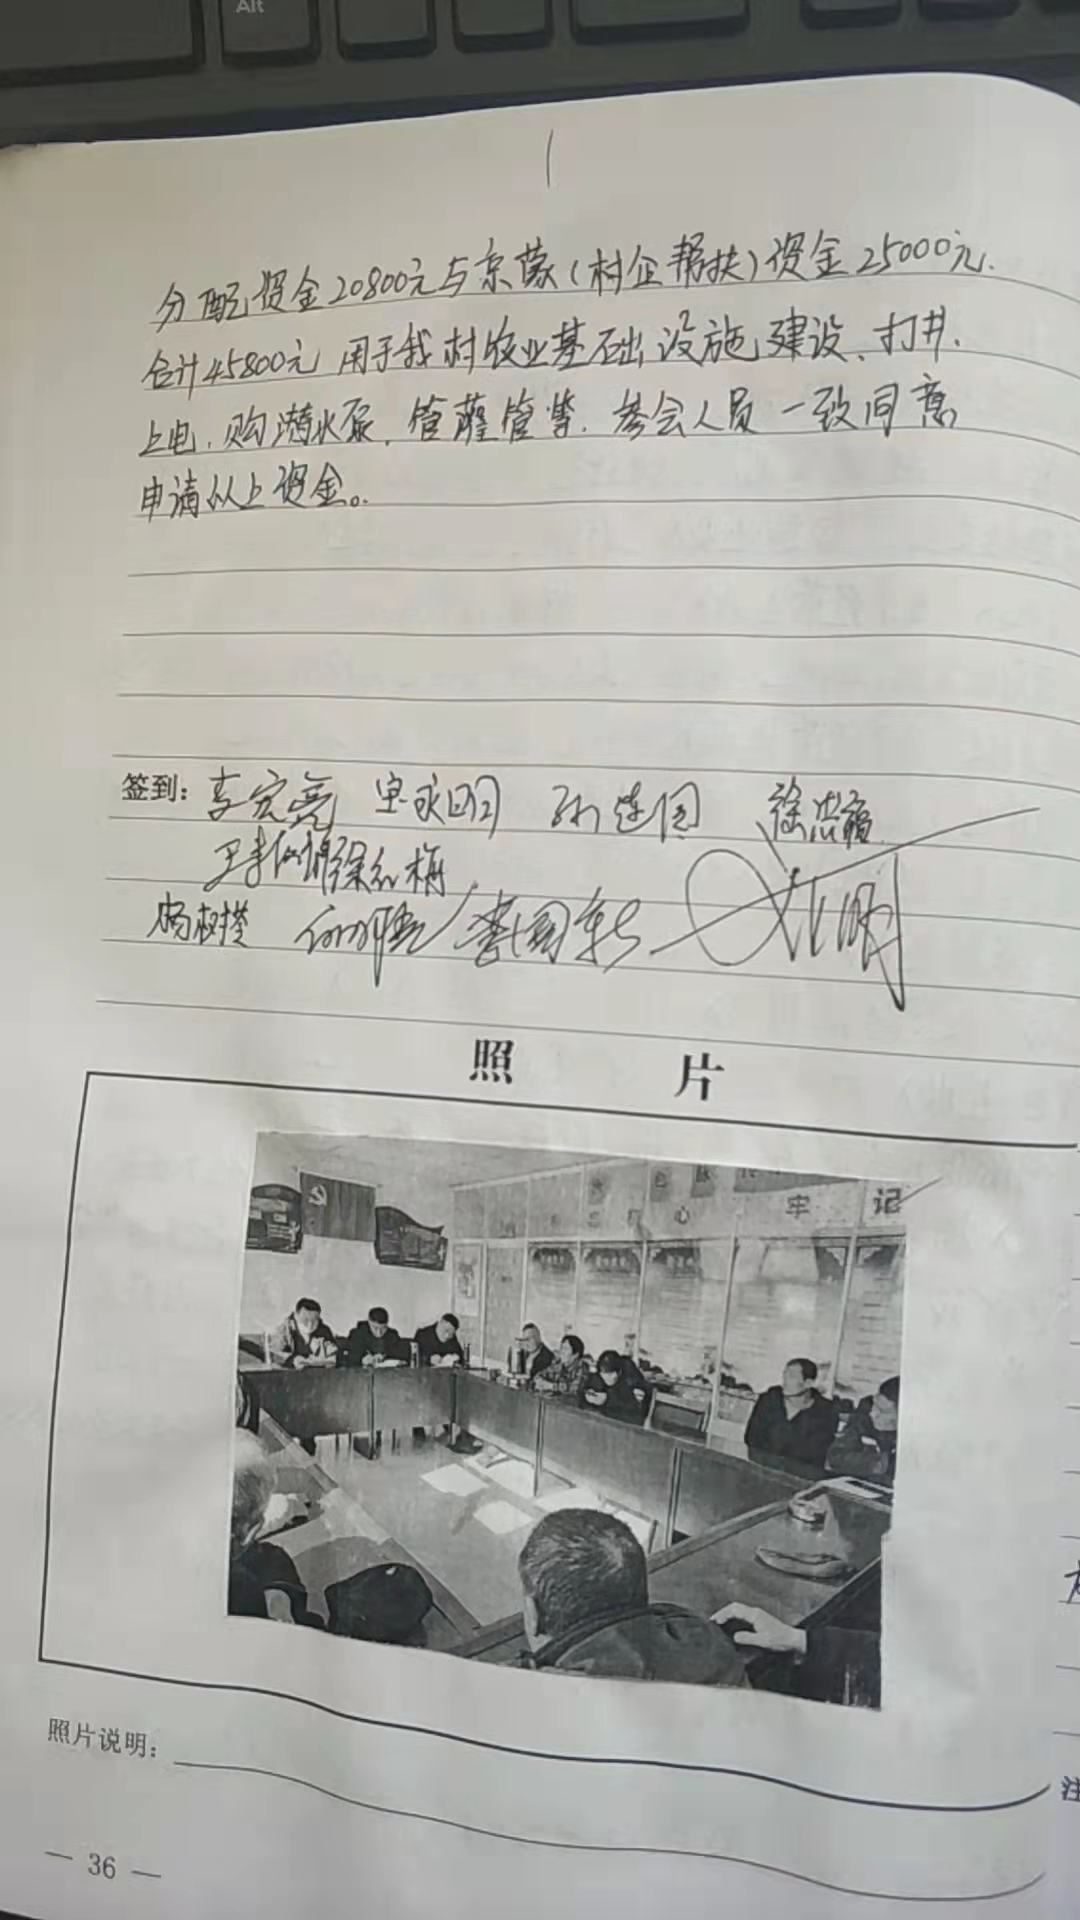 Alt
分配资金20800元与京蒙(村企帮扶)资金25000元.
合计45800元用于我村农业基础设施建设、打井.
上电.购潜水泵.管灌管等.参会人员一致同意
申请以上资金。
签到: 李宏亮 徐忠福
徐红梅
杨树 李国
照 片
牢 记
心
照片说明:
注
— 36 —